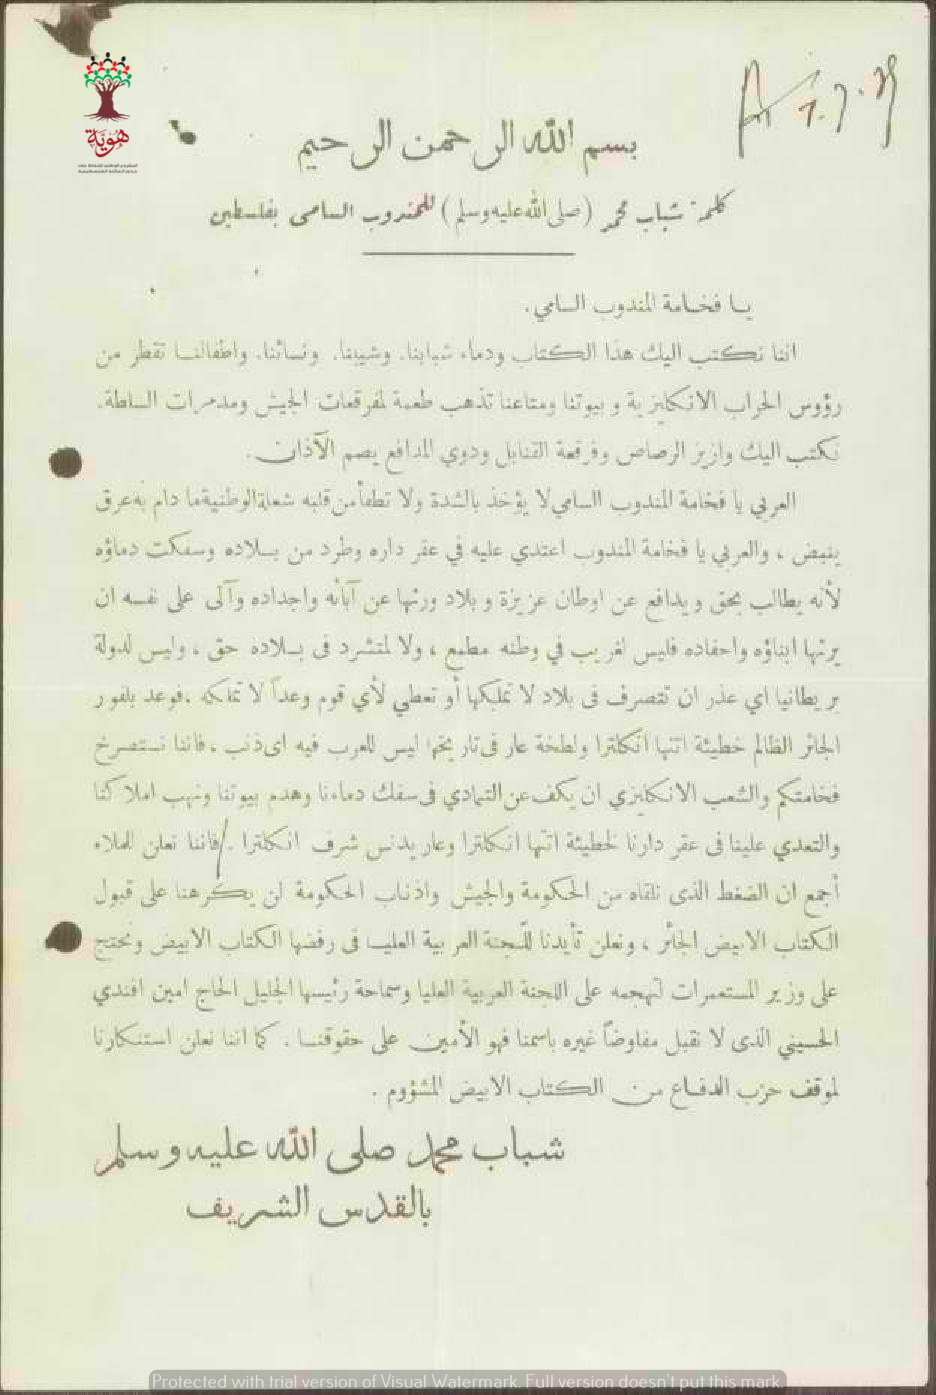 هوية
1.7.39
بسم الله الرحمن الرحيم
كلمة شباب محمد (صلى الله عليه وسلم) للمندوب السامى بفلسطين
يا فخامة المندوب السامي.
اننا نكتب اليك هذا الكتاب ودماء شبابنا. وشيبنا. ونسائنا. واطفالنا تقطر من
رؤوس الحراب الانكليزية و بيوتنا ومتاعنا تذهب طعمة لمفرقعات الجيش ومدمرات السلطة.
نكتب اليك وازيز الرصاص وفرقعة القنابل ودوي المدافع يصم الآذان.
العربي يا فخامة المندوب السامي لا يؤخذ بالشدة ولا تطفأ من قلبه شعلة الوطنية ما دام به عرق
ينبض ، والعربي يا فخامة المندوب اعتدي عليه في عقر داره وطرد من بلاده وسفكت دماؤه
لأنه يطالب بحق و يدافع عن اوطان عزيزة و بلاد ورثها عن آبائه واجداده وآلى على نفسه ان
يرثها ابناؤه واحفاده فليس لغريب في وطنه مطمع ، ولا لمتشرد فى بلاده حق ، وليس لدولة
بريطانيا اي عذر ان تتصرف فى بلاد لا تملكها أو تعطي لأي قوم وعداً لا تملكه .فوعد بلفور
الجائر الظالم خطيئة اتتها انكلترا ولطخة عار فى تاريخها ليس للعرب فيه اى ذنب ، فاننا نستصرخ
فخامتكم والشعب الانكليزي ان يكف عن التمادي فى سفك دماءنا وهدم بيوتنا ونهب املاكنا
والتعدي علينا فى عقر دارنا لخطيئة اتتها انكلترا وعار يدنس شرف انكلترا ./فاننا نعلن للملاء
أجمع ان الضغط الذى نلقاه من الحكومة والجيش واذناب الحكومة لن يكرهنا على قبول
الكتاب الابيض الجائر ، ونعلن تأيدنا للّجنة العربية العليا فى رفضها الكتاب الابيض ونحتج
على وزير المستعمرات لتهجمه على اللجنة العربية العليا وسماحة رئيسها الجليل الحاج امين افندي
الحسيني الذى لا نقبل مفاوضاً غيره باسمنا فهو الأمين على حقوقنا . كما اننا نعلن استنكارنا
لموقف حزب الدفاع من الكتاب الابيض المشؤوم .
شباب محمد صلى الله عليه وسلم
بالقدس الشريف
Protected with trial version of Visual Watermark. Full version doesn't put this mark.